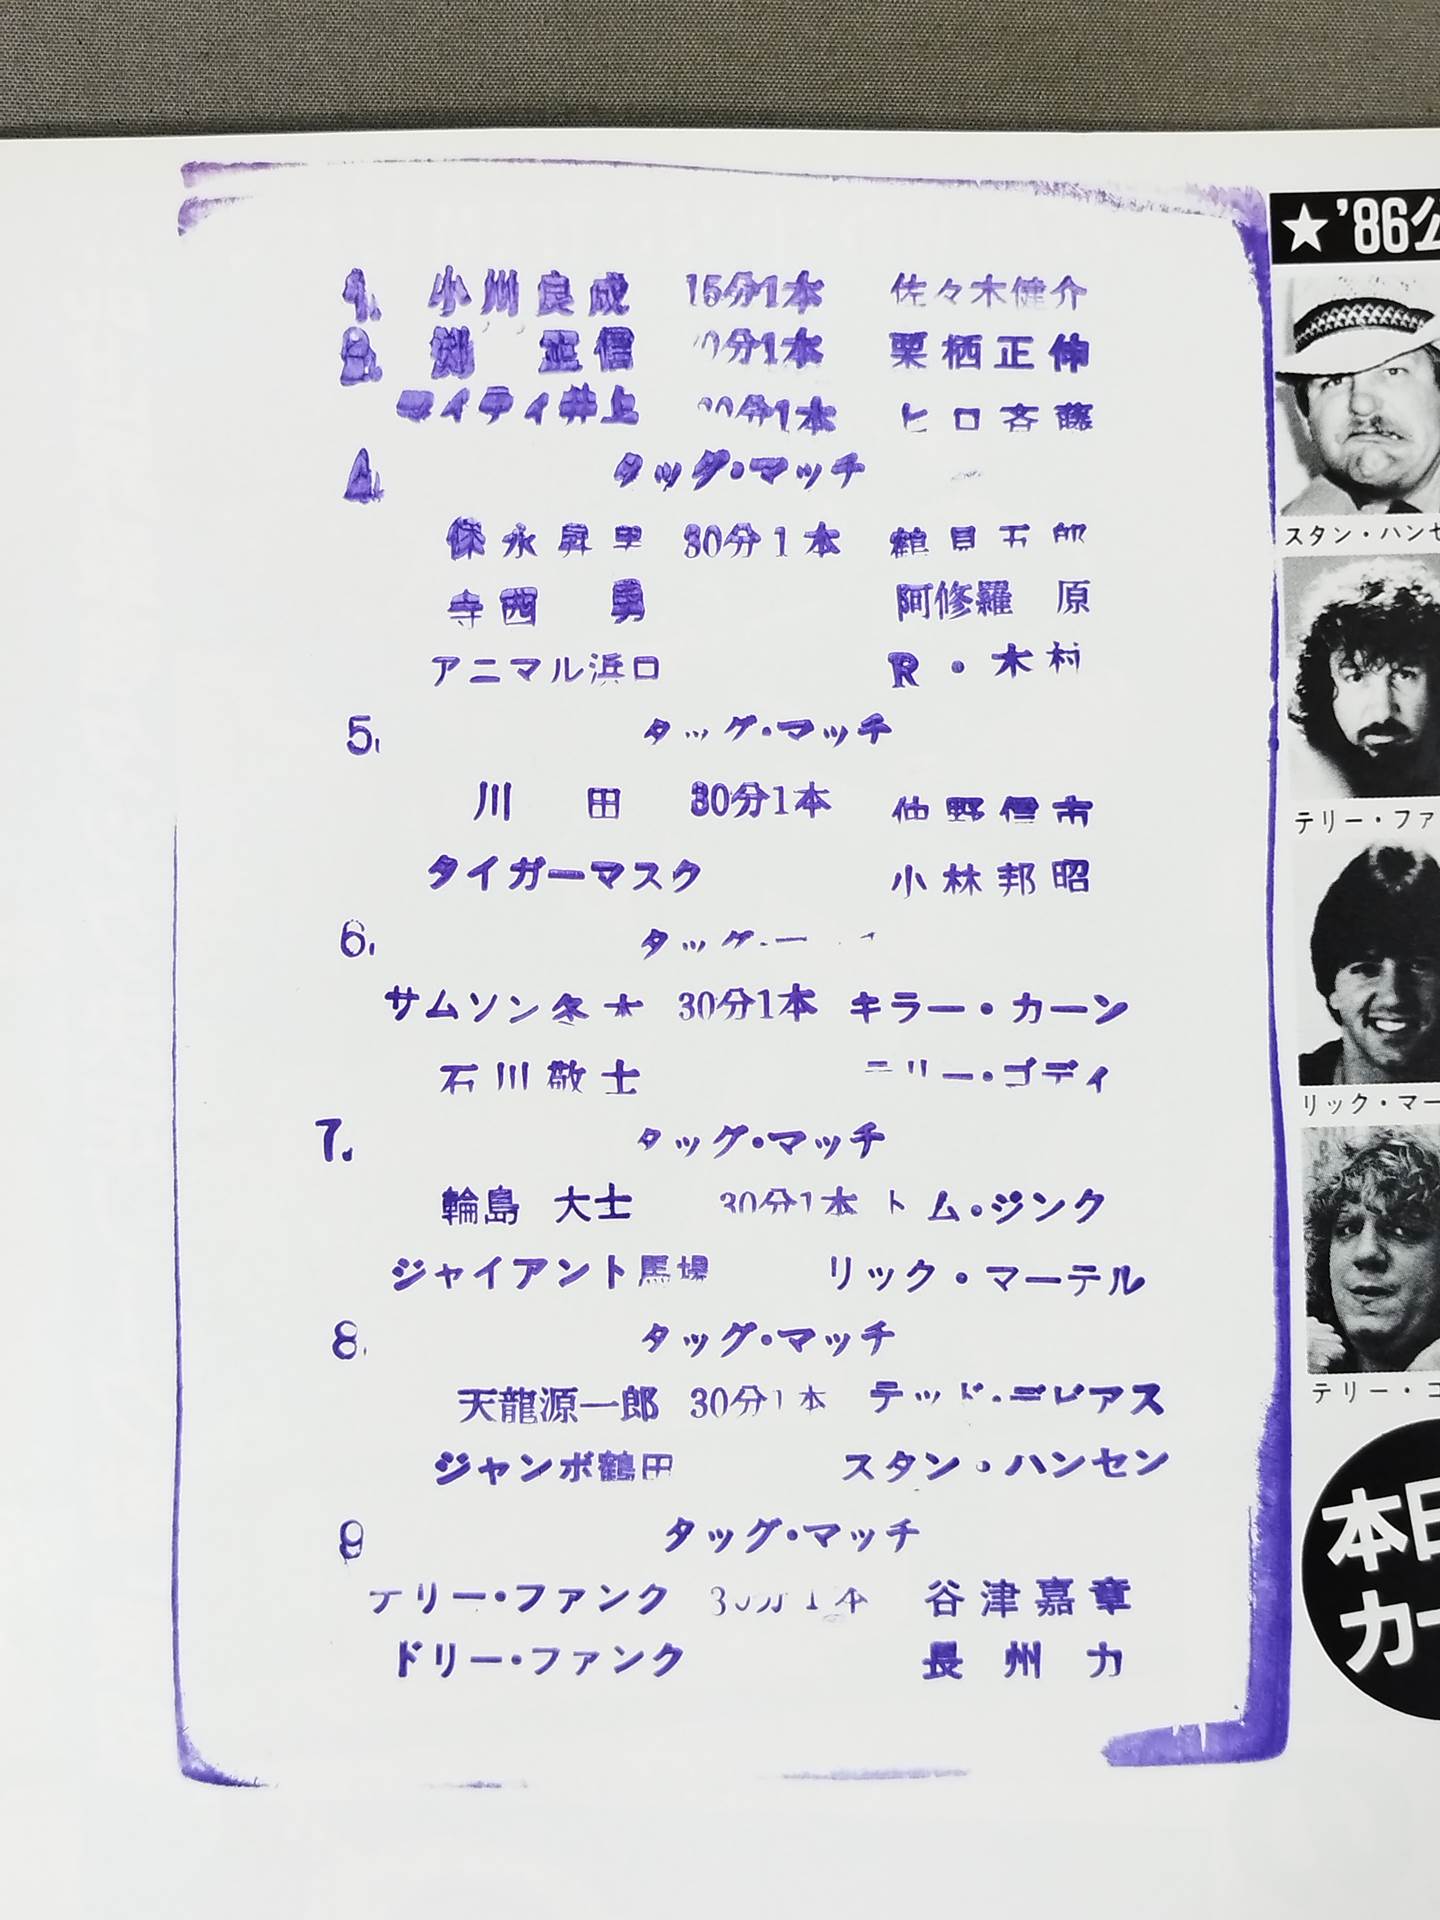 1. 小川良成 15分1本 佐々木健介
2. 剡 正信 0分1本 栗栖正伸
マイティ井上 20分1本 ヒロ斉藤
4. タッグ・マッチ
保永昇男 30分1本 鶴見五郎
寺西 勇 阿修羅 原
アニマル浜口 R・木村
5. タッグ・マッチ
川田 30分1本 仲野信市
タイガーマスク 小林邦昭
6. タッグ・
サムソン冬木 30分1本 キラー・カーン
石川敬士 テリー・ゴディ
7. タッグ・マッチ
輪島 大士 30分1本 トム・ジンク
ジャイアント馬場 リック・マーテル
8. タッグ・マッチ
天龍源一郎 30分1本 テッド・デビアス
ジャンボ鶴田 スタン・ハンセン
9 タッグ・マッチ
テリー・ファンク 30分1本 谷津嘉章
ドリー・ファンク 長州 力
★'86公
スタン・ハンセ
テリー・ファ
リック・マー
テリー・ゴ
本日
カー